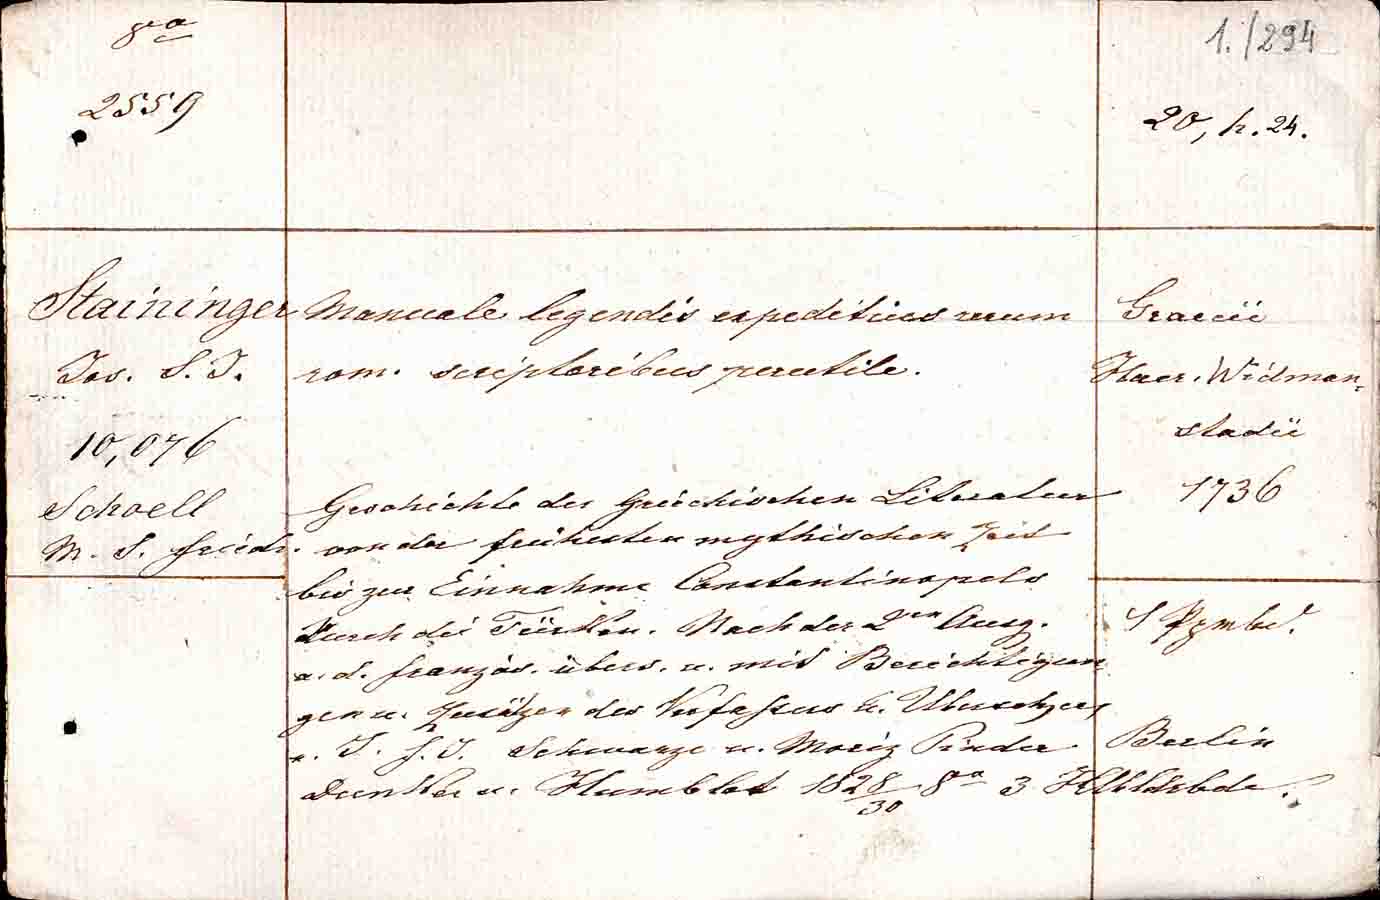 8va
1./294
2559
20, h. 24.
Staininger Manuale legendis expeditius rerum Graecii
Jos. S. J. rom. scriptoribus perutile. Haer. Widman-
stadii
10,076
1736
Schoell Geschichte der Griechischen Literatur
M. S. Friedr. von der frühesten mythischen Zeit
bis zur Einnahme Constantinopels
durch die Türken. Nach der 2ten Ausg.
a. d. französ. übers. u. mit Berichtigun
gen u. Zusätzen des Verfassers u. Übersetzers
v. J. F. J. Schwarze u. Moriz Pinder Berlin
Dunker u. Humblot 1828/30 8va 3 Hlbldrbde.